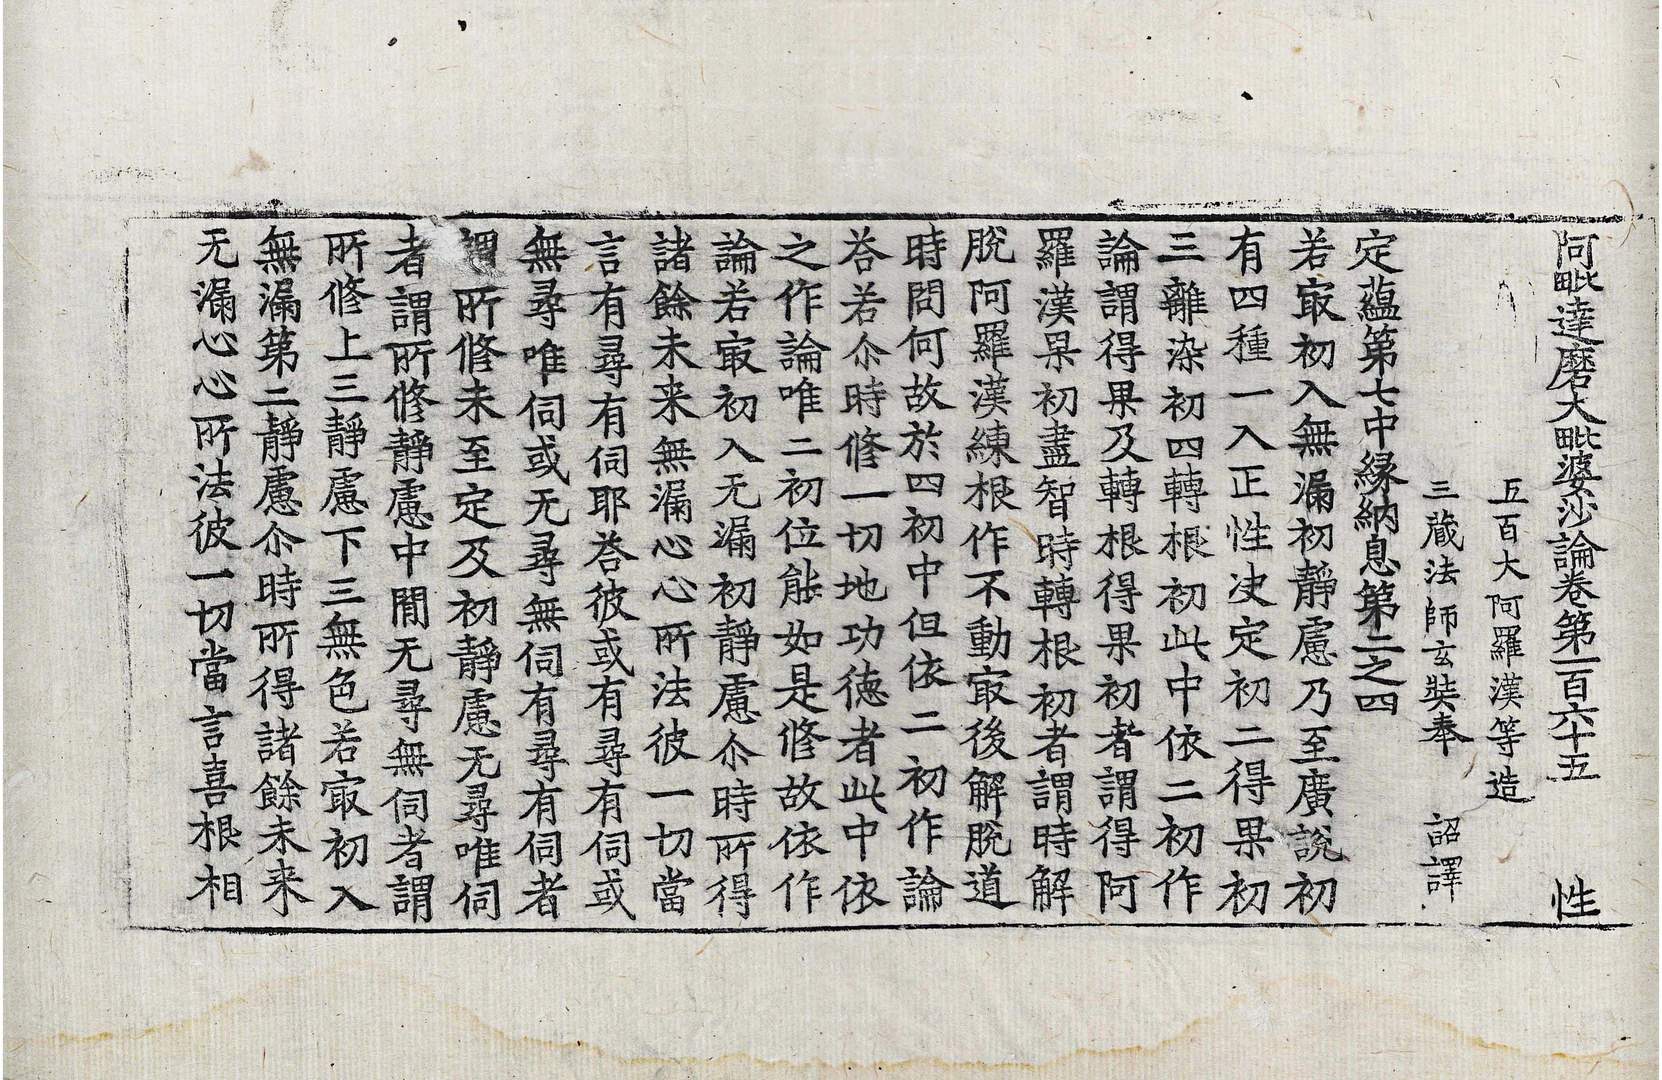 阿毗達磨大毗婆沙論卷第一百六十五　性
五百大阿羅漢等造
三藏法師玄奘奉　詔譯
定蘊第七中緣納息第二之四
若㝡初入無漏初靜慮乃至廣說初
有四種一入正性决定初二得果初
三離染初四轉根初此中依二初作
論謂得果及轉根得果初者謂得阿
羅漢果初盡智時轉根初者謂時解
脫阿羅漢練根作不動㝡後解脫道
時問何故於四初中但依二初作論
荅若尒時修一切地功德者此中依
之作論唯二初位能如是修故依作
論若㝡初入无漏初靜慮尒時所得
諸餘未来無漏心心所法彼一切當
言有尋有伺耶荅彼或有尋有伺或
無尋唯伺或无尋無伺有尋有伺者
謂所修未至定及初靜慮无尋唯伺
者謂所修靜慮中閒无尋無伺者謂
所修上三靜慮下三無色若㝡初入
無漏第二靜慮尒時所得諸餘未来
无漏心心所法彼一切當言喜根相